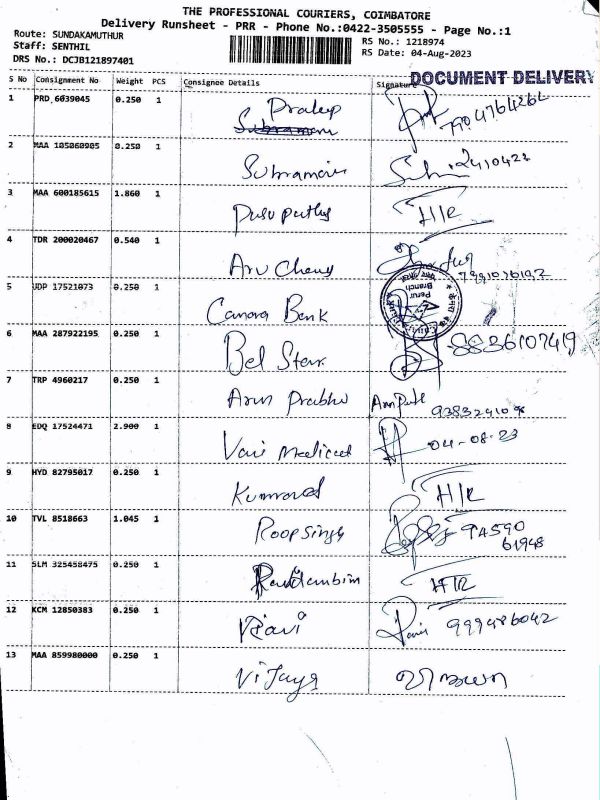 THE PROFESSIONAL COURIERS, COIMBATORE
Delivery Runsheet - PRR - Phone No.:0422-3505555 - Page No.:1
Route: SUNDAKAMUTHUR
Staff: SENTHIL
DRS No.: DCJB121897401
RS No.: 1218974
RS Date: 04-Aug-2023
DOCUMENT DELIVERY
S No Consignment No Weight PCS Consignee Details Signature
1 PRD 6039045 0.250 1 Pradeep
2 MAA 105060905 0.250 1 Subramani
3 MAA 600185615 1.860 1 H/R
4 TDR 200020467 0.540 1
5 UDP 17521073 0.250 1 Canara Bank
Perur
Branch
6 MAA 287922195 0.250 1 Bel Stars 8836107419
7 TRP 4960217 0.250 1 Arun Prabhu
8 EDQ 17524471 2.900 1 Vani Medical 04-08-23
9 HYD 82795017 0.250 1 H/R
10 TVL 8518663 1.045 1 Roopsingh 94590
61948
11 SLM 325458475 0.250 1 H/R
12 KCM 12850383 0.250 1 Ravi Ravi 999486042
13 MAA 859980000 0.250 1 Vijaya